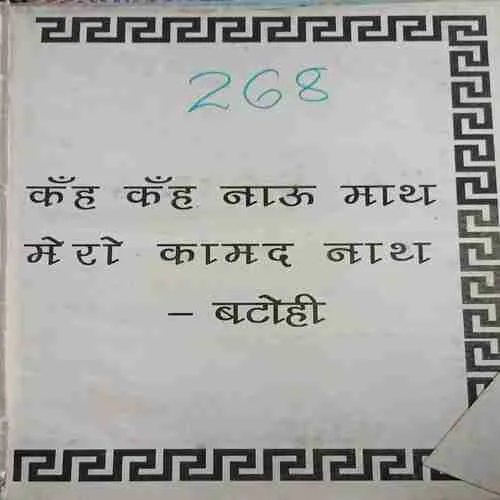 268
कँह कँह नाऊ माथ
मेरो कामद नाथ
– बटोही